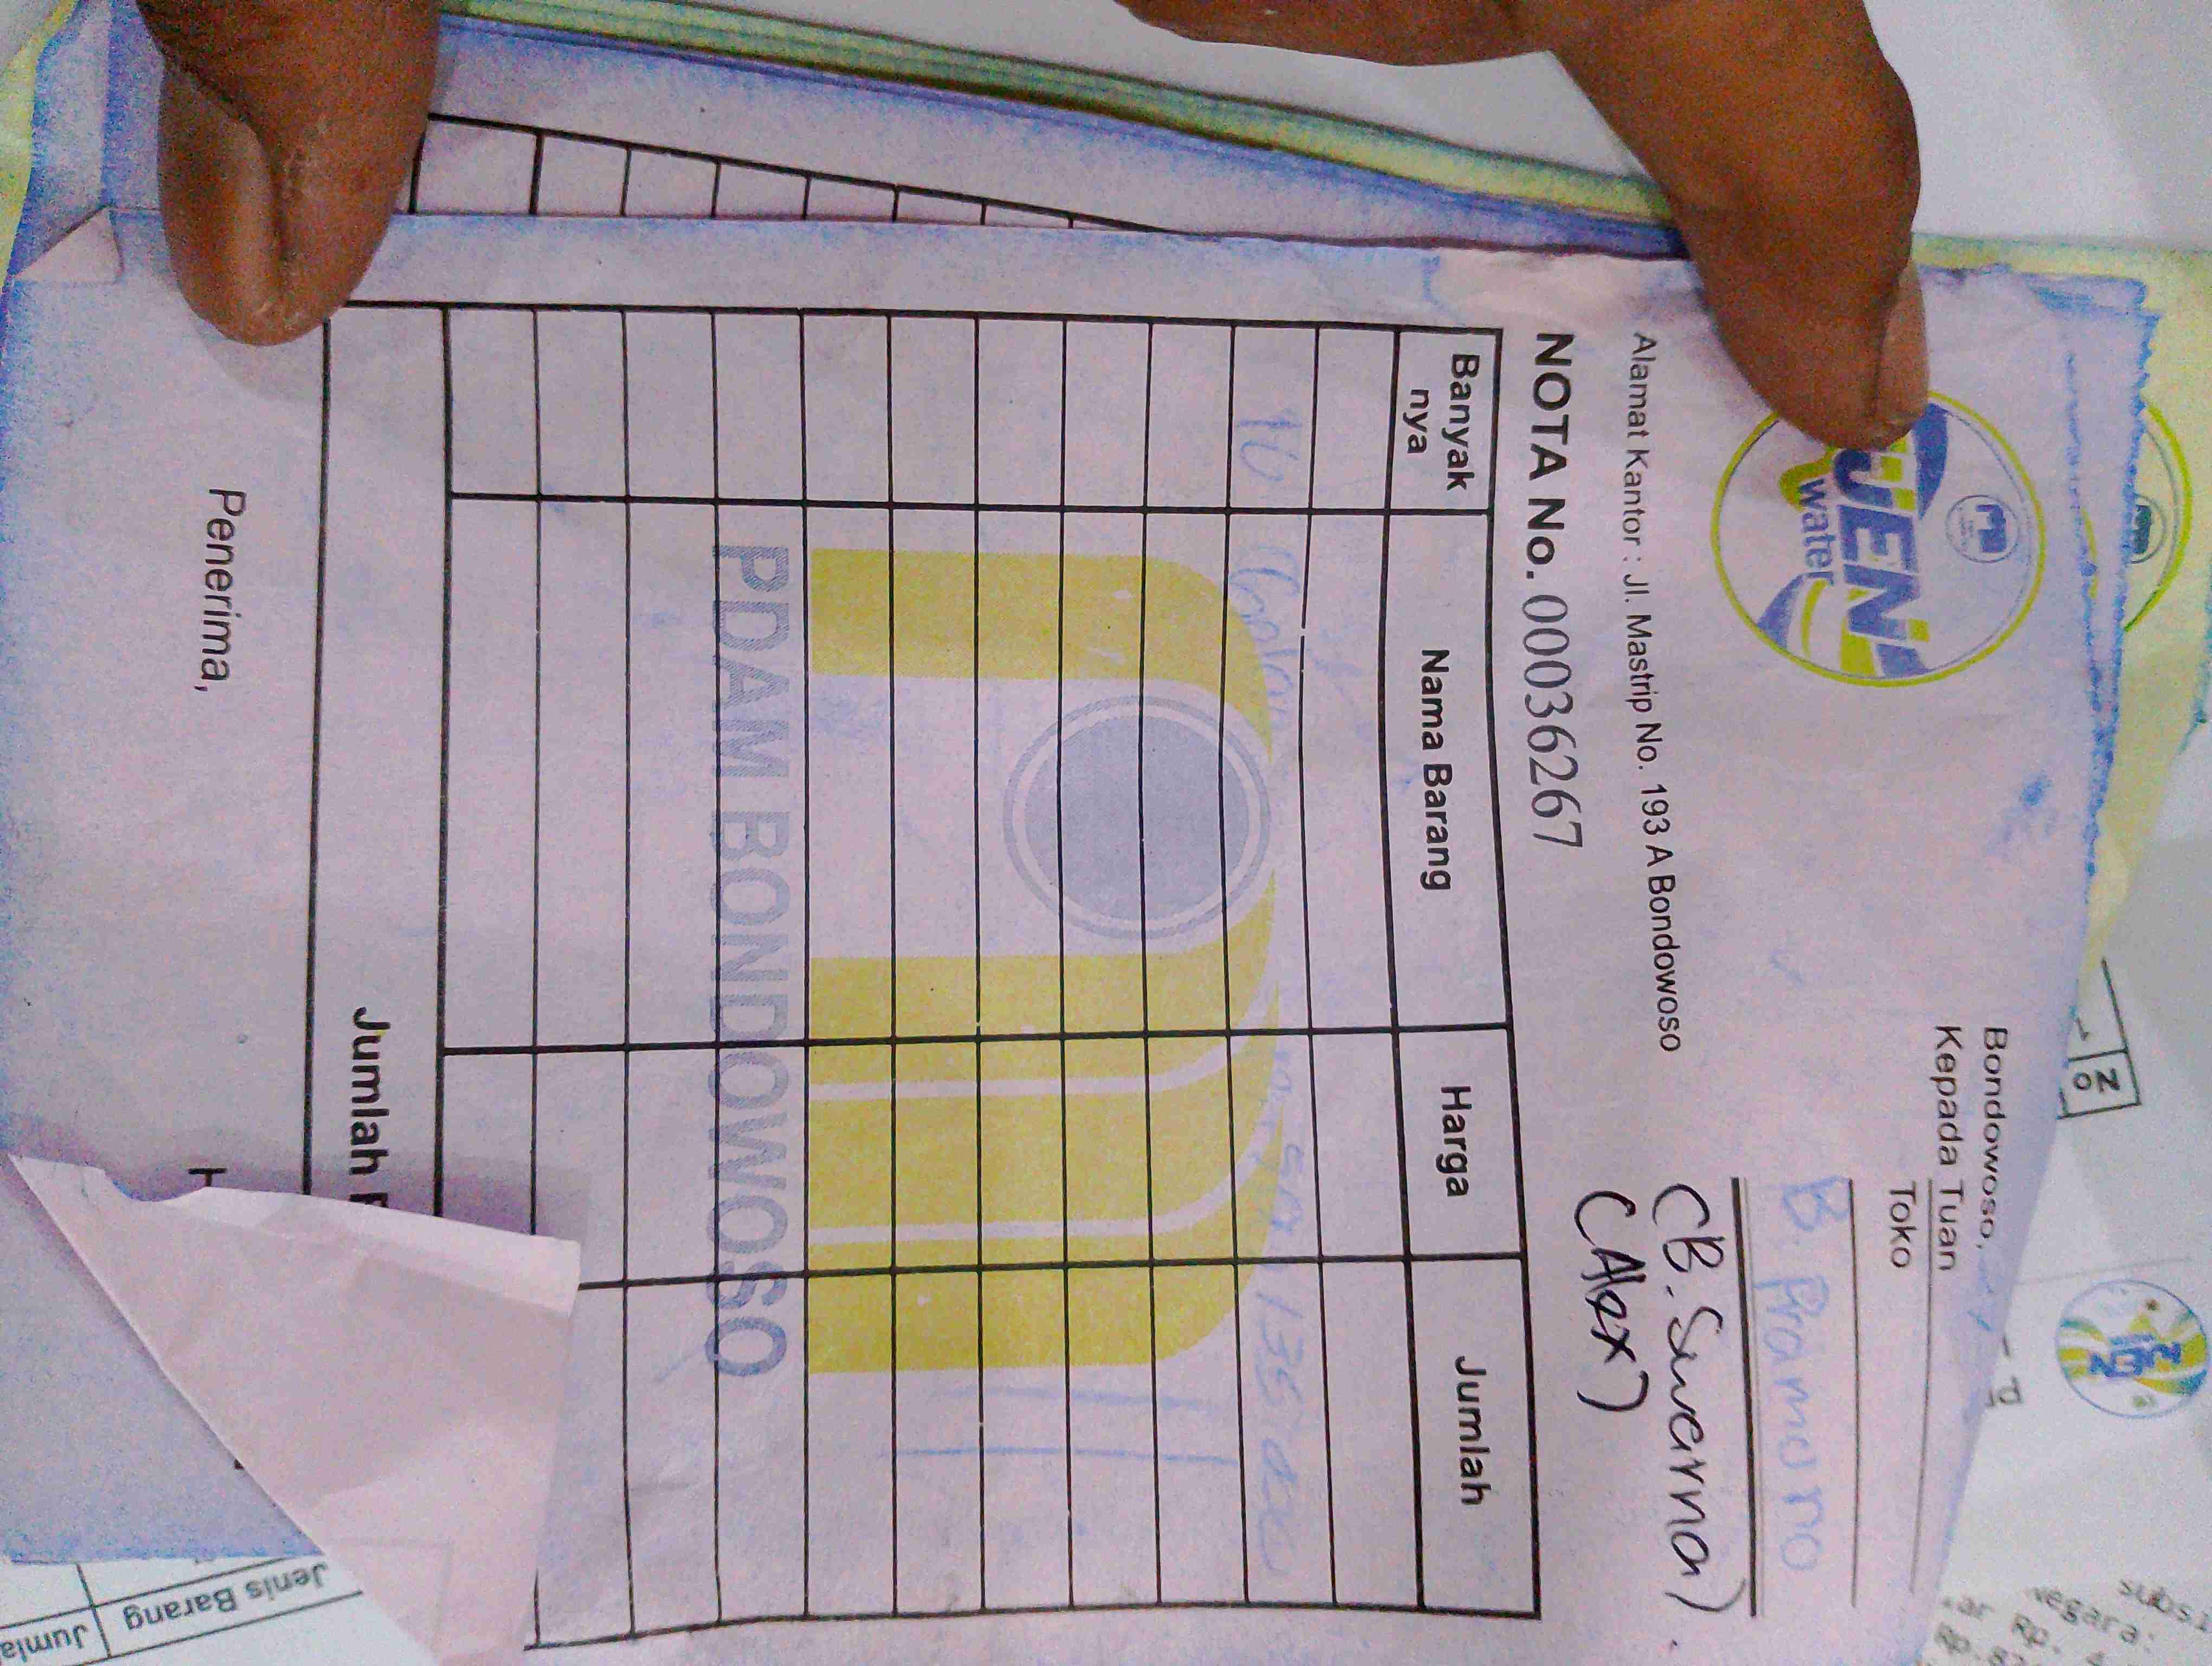 IJEN
water
Bondowoso,
Kepada Tuan
Toko
B. Pramono
(B. Suwarno).
(Alex)
Alamat Kantor : Jl. Mastrip No. 193 A Bondowoso
NOTA No. 00036267
Banyak
nya
Nama Barang
Harga
Jumlah
10
135
PDAM BONDOWOSO
Jumlah
Penerima,
Jenis Barang
negara:
Rp.